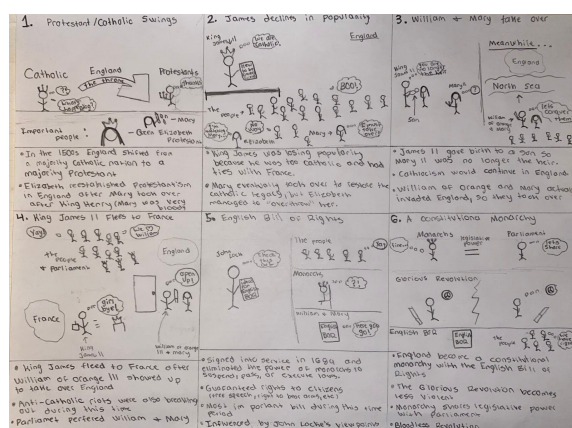 1. Protestant/Catholic Swings
Catholic
England
Protestants
The throne
??
Important people:
- Mary
- Queen Elizabeth
Protestant
• In the 1500s England shifted from
a majority Catholic nation to a
majority Protestant
• Elizabeth reestablished Protestantism
in England after Mary took over
after King Henry (Mary was very
bloody)
2. James declines in popularity
King James II
We are Catholic.
England
BOO!
The people
Elizabeth
Mary
• King James was losing popularity
because he was too catholic and had
ties with France.
• Mary eventually took over to
the
catholic legacy, but Elizabeth
managed to "overthrow" her.
3. William & Mary take over
Meanwhile...
England
North sea
King James II
you are no longer the heir
Mary II
?
son
lets conquer them
William of orange & mary
• James II gave birth to a son so
Mary II was no longer the heir.
• Catholicism would continue in England.
• William of Orange and Mary
invaded England, so they took over
4. King James II Flees to France
Yay!
We <3 William
the people & Parliament
England
France
girl bye!
open up!
King James II
William of orange III & mary
• King James fled to France after
William of orange III showed up
to take over England
• Anti-catholic riots were also breaking
out during this time
• Parliament perfered William & Mary
5. English Bill of Rights
John Locke
The people
Yay
Monarchs
?!
William & Mary
English BOR
here you go!
• Signed into service in 1689 and
eliminated the power of monarchs to
suspend, pass, or execute laws.
• Guaranteed rights to citizens
(free speech, right to bear arms, etc)
• Most important bill during this time
period
• Influenced by John Locke's viewpoints
6. A constitutional Monarchy
fine..
Monarchs
legislative power
Parliament
lets share
Glorious Revolution
English BOR
English BOR
the people
• England became a constitutional
monarchy with the English Bill of
Rights
• The Glorious Revolution becomes
less violent
• Monarchy shares legislative power
with parliament
• Bloodless Revolution